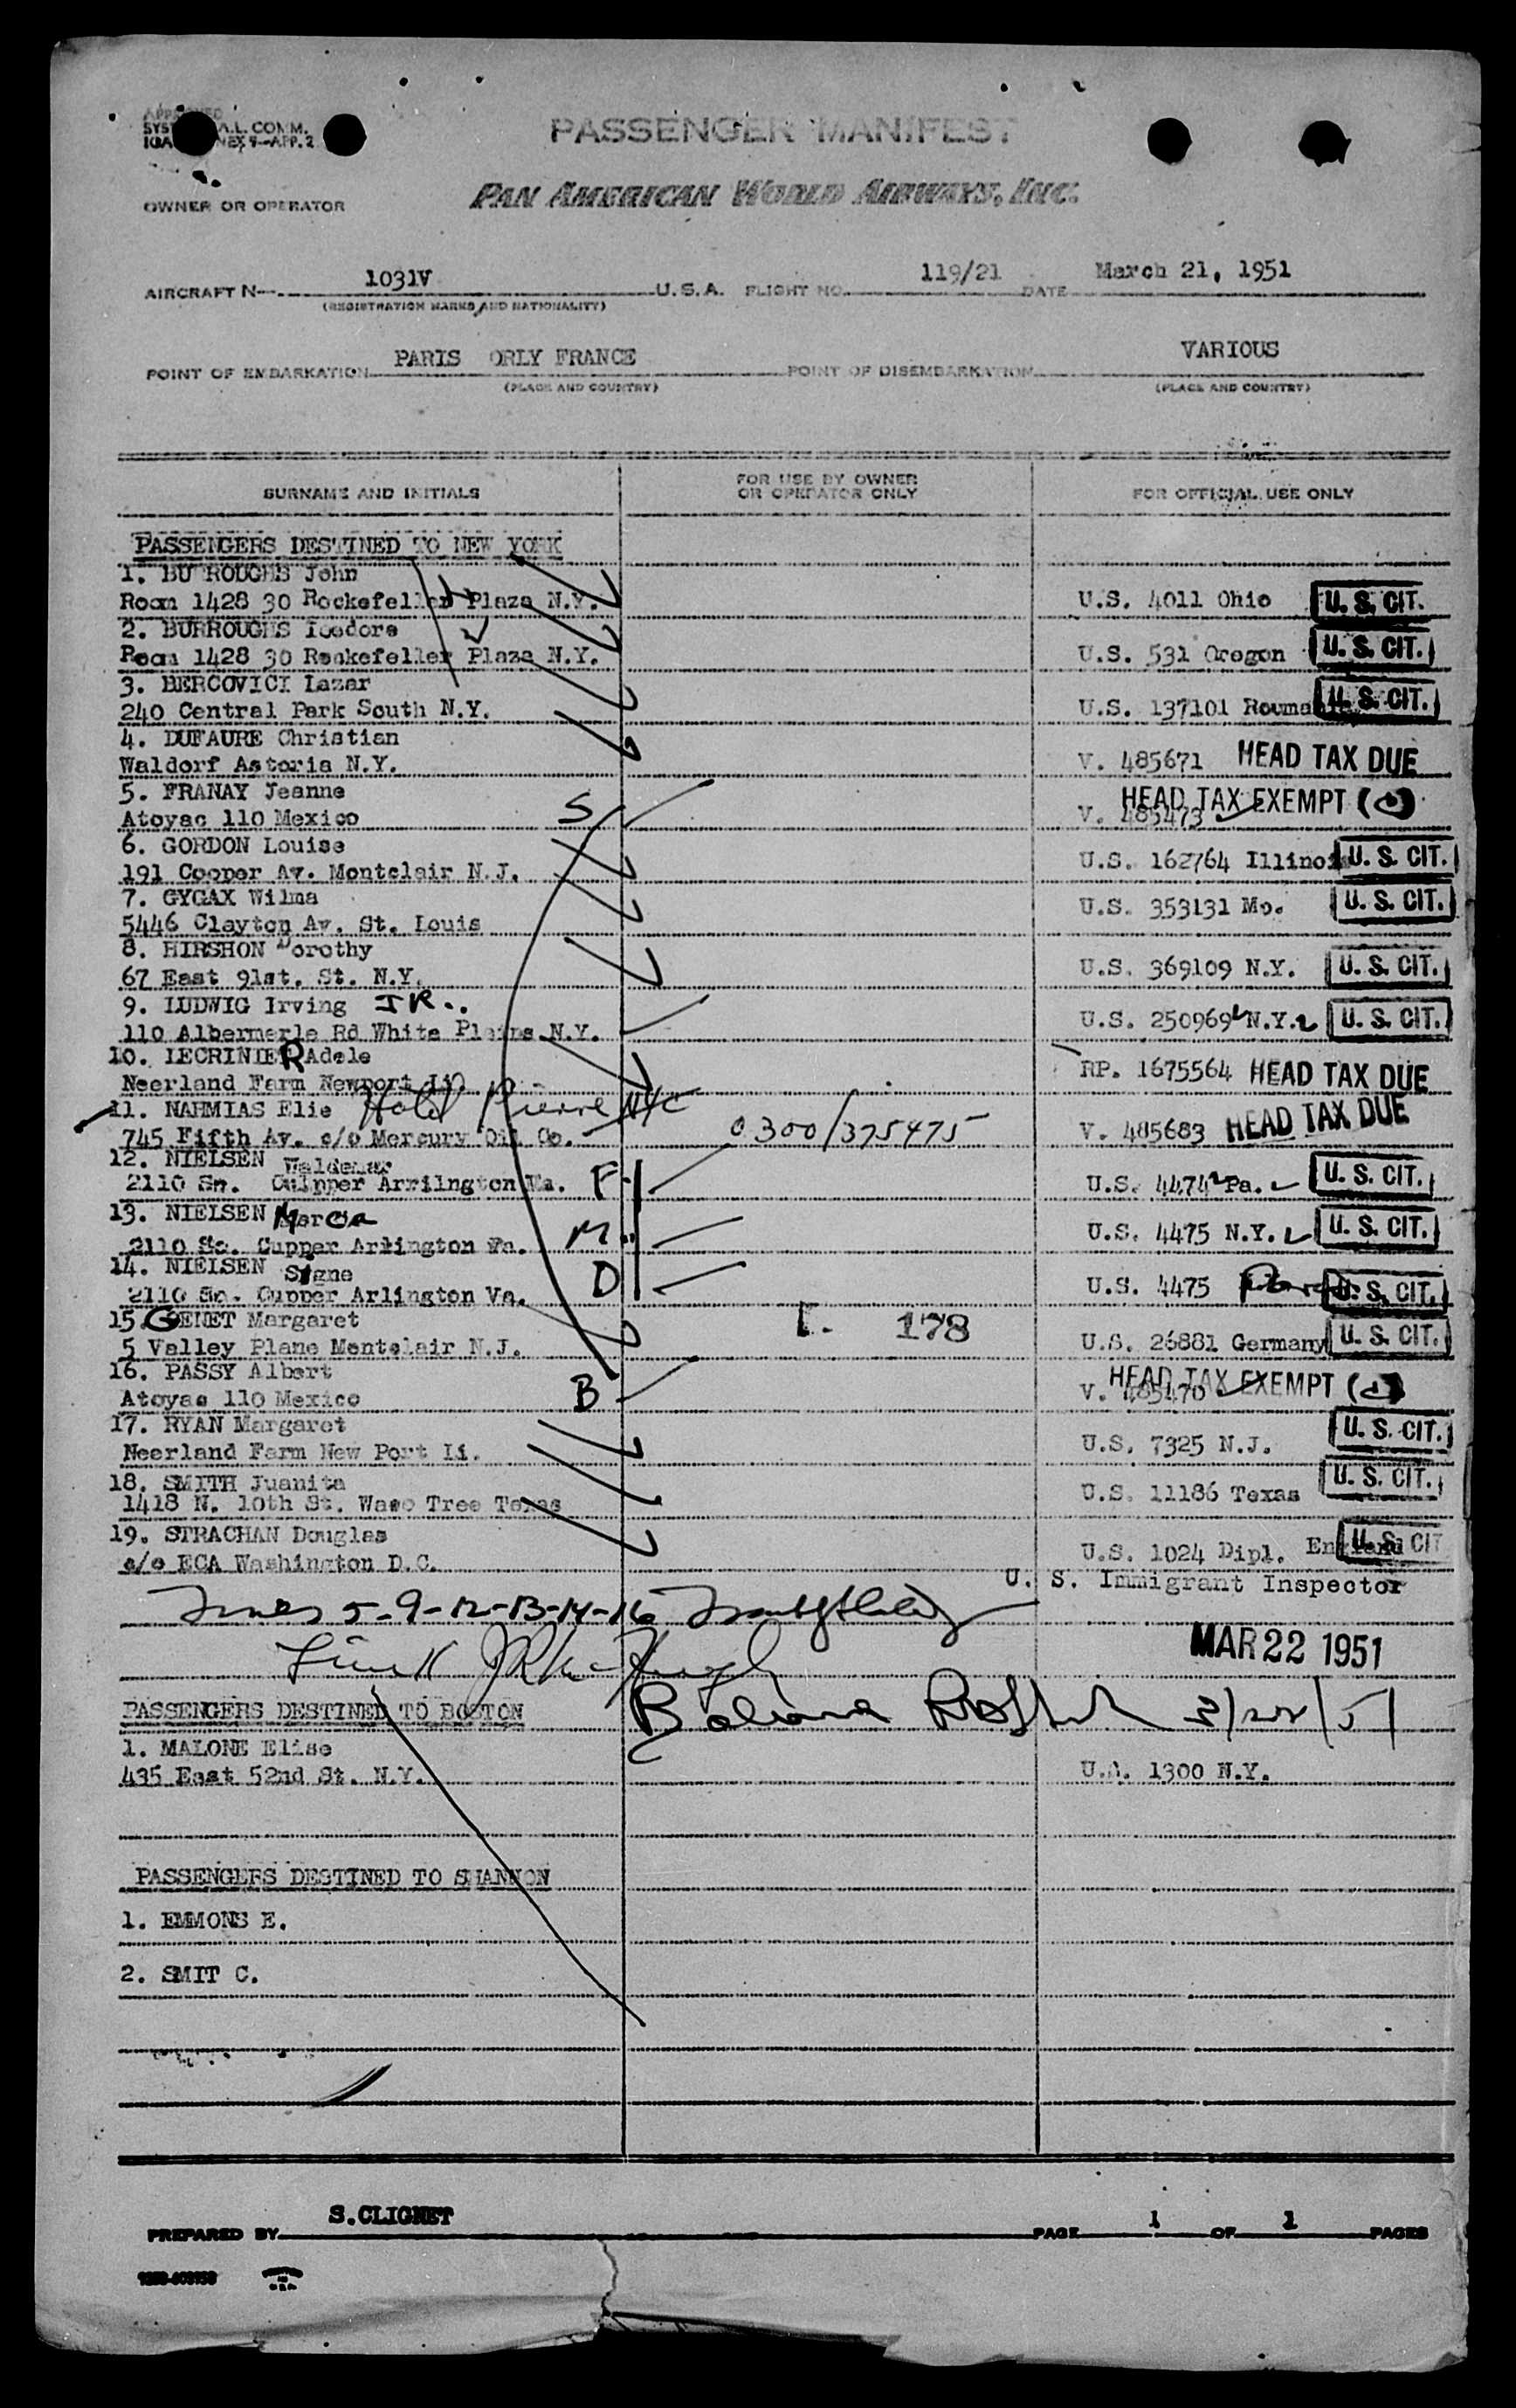 PASSENGER MANIFEST
PAN AMERICAN WORLD AIRWAYS, INC.
OWNER OR OPERATOR
AIRCRAFT N 1031V U.S.A. FLIGHT NO. 119/21 DATE March 21, 1951
(REGISTRATION MARKS AND NATIONALITY)
POINT OF EMBARKATION PARIS ORLY FRANCE POINT OF DISEMBARKATION VARIOUS
(PLACE AND COUNTRY) (PLACE AND COUNTRY)
SURNAME AND INITIALS FOR USE BY OWNER OR OPERATOR ONLY FOR OFFICIAL USE ONLY
PASSENGERS DESTINED TO NEW YORK
1. BURROUGHS John
Room 1428 30 Rockefeller Plaza N.Y. U.S. 4011 Ohio U.S. CIT.
2. BURROUGHS
Room 1428 30 Rockefeller Plaza N.Y. U.S. 531 Oregon U.S. CIT.
3. BERCOVICI Lazar
240 Central Park South N.Y. U.S. 137101 U.S. CIT.
4. DUFAURE Christian
Waldorf Astoria N.Y. V. 485671 HEAD TAX DUE
5. FRANAY Jeanne
Atoyac 110 Mexico S V. 485473 HEAD TAX EXEMPT
6. GORDON Louise
191 Cooper Av. Montclair N.J. U.S. 162764 Illinois U.S. CIT.
7. GYGAX Wilma
5446 Clayton Av. St. Louis U.S. 353131 Mo. U.S. CIT.
8. HIRSHON Dorothy
67 East 91st. St. N.Y. U.S. 369109 N.Y. U.S. CIT.
9. LUDWIG Irving JR.
110 Albermarle Rd White Plains N.Y. U.S. 250969 N.Y. U.S. CIT.
10. LECRINIER Adele
Neerland Farm Newport RP. 1675564 HEAD TAX DUE
11. NAHMIAS Elie Hotel Pierre NYC
745 Fifth Av. c/o Mercury Oil Co. 0300/375475 V. 485683 HEAD TAX DUE
12. NIELSEN Waldemar
2110 So. Culpper Arrilngton Va. F U.S. 4474 Pa. U.S. CIT.
13. NIELSEN Marcia
2110 So. Cupper Arlington Va. M U.S. 4475 N.Y. U.S. CIT.
14. NIELSEN Signe
2110 So. Cupper Arlington Va. D U.S. 4475 U.S. CIT.
15. GENET Margaret
5 Valley Plane Montclair N.J. 178 U.S. 26881 Germany U.S. CIT.
16. PASSY Albert
Atoyac 110 Mexico B V. 485470 HEAD TAX EXEMPT
17. RYAN Margaret
Neerland Farm New Port Li. U.S. 7325 N.J. U.S. CIT.
18. SMITH Juanita
1418 N. 10th St. Waco Tree Texas U.S. 11186 Texas U.S. CIT.
19. STRACHAN Douglas
c/o ECA Washington D.C. U.S. 1024 Dipl. England U.S. CIT
U. S. Immigrant Inspector
5-9-12-13-14-16
MAR 22 1951
PASSENGERS DESTINED TO BOSTON
1. MALONE Elise
435 East 52nd St. N.Y. 1300 N.Y.
PASSENGERS DESTINED TO SHANNON
1. EMMONS E.
2. SMIT C.
PREPARED BY S.CLIGNET PAGE 1 OF 1 PAGES